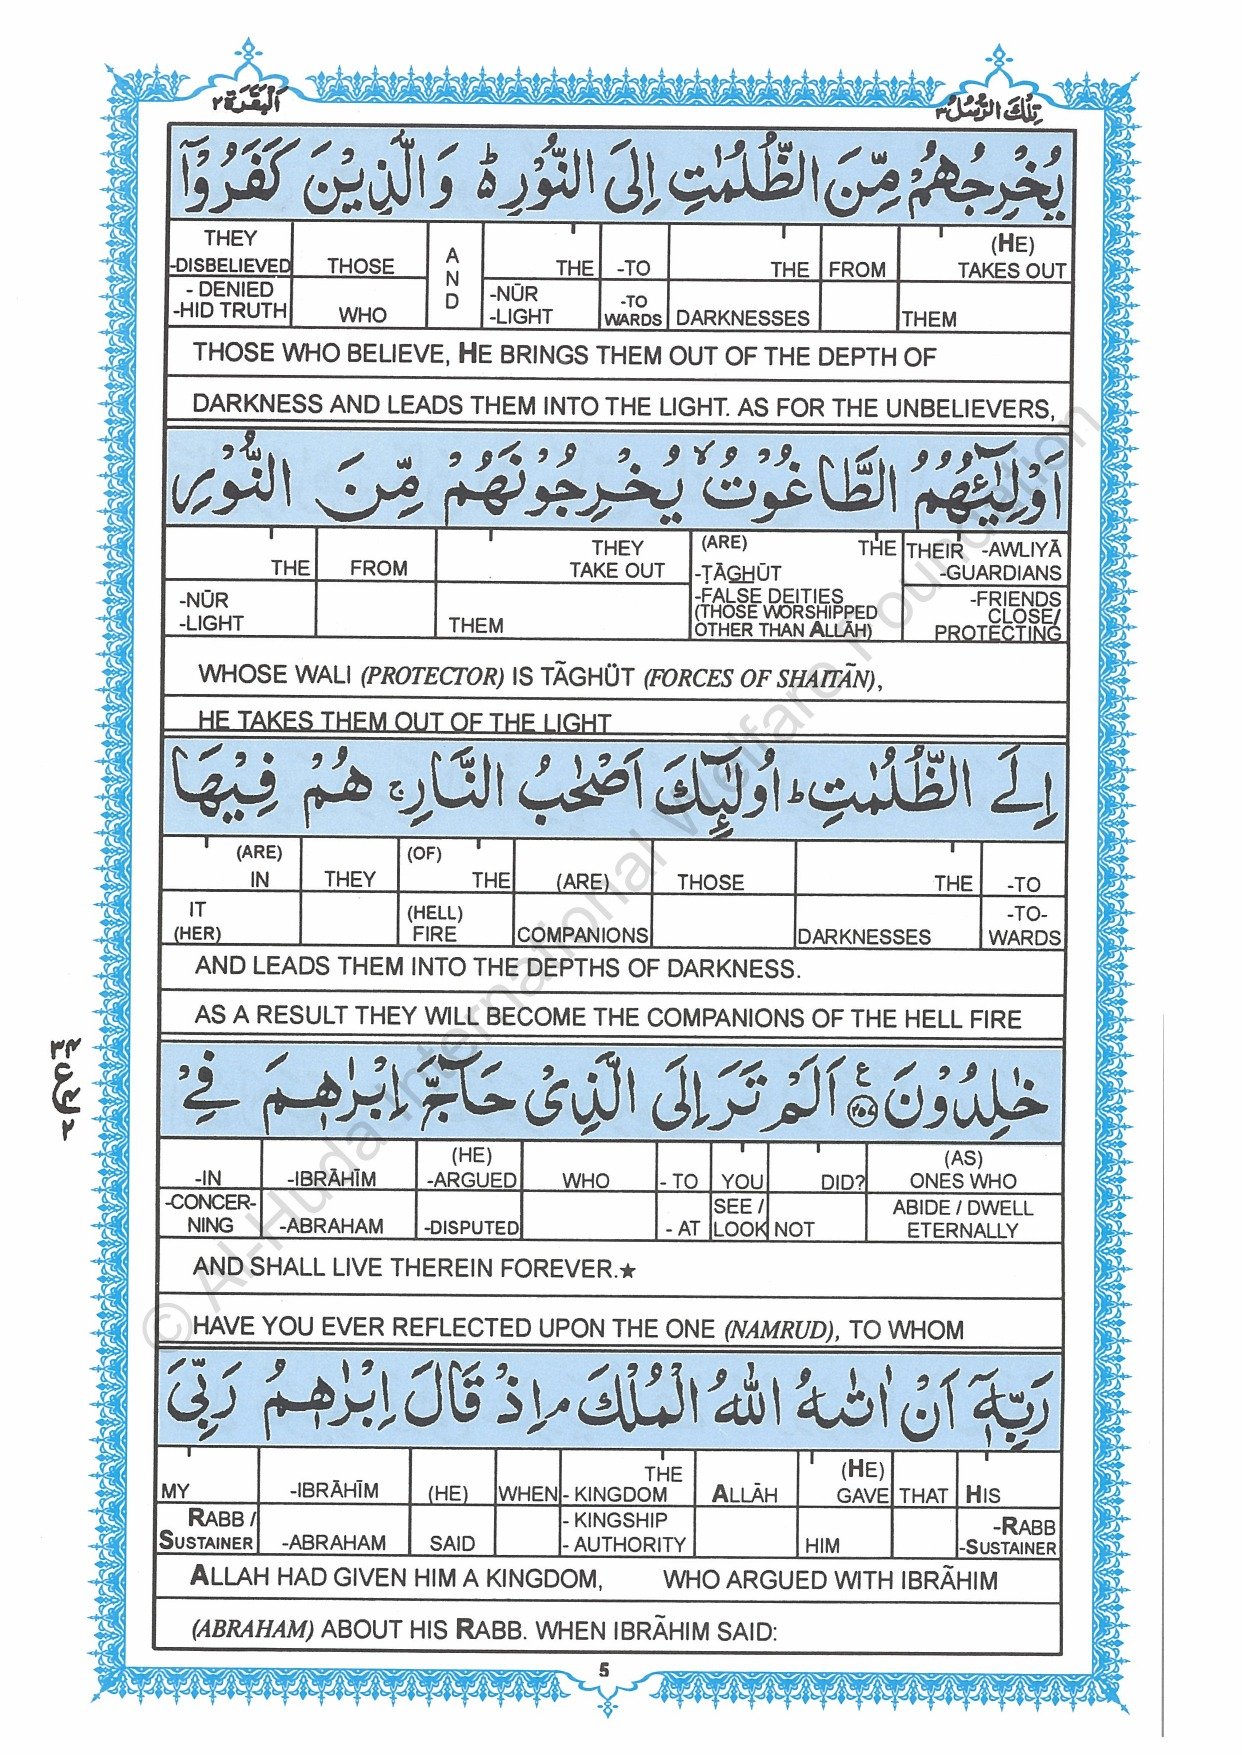 اَلْبَقَرَة ٢
تِلْكَ الرُّسُلُ ٣
يُخْرِجُهُمْ مِّنَ الظُّلُمٰتِ اِلَى النُّوْرِ ؕ وَ الَّذِيْنَ كَفَرُوْۤا
THEY THE -TO THE (HE)
-DISBELIEVED THOSE AND THE -TO THE FROM TAKES OUT
- DENIED -NŪR -TO
-HID TRUTH WHO -LIGHT WARDS DARKNESSES THEM
THOSE WHO BELIEVE, HE BRINGS THEM OUT OF THE DEPTH OF
DARKNESS AND LEADS THEM INTO THE LIGHT. AS FOR THE UNBELIEVERS,
اَوْلِيٰٓـُٔهُمُ الطَّاغُوْتُ ۙ يُخْرِجُوْنَهُمْ مِّنَ النُّوْرِ
THEY (ARE) THE THEIR -AWLIYĀ
THE FROM TAKE OUT -ṬĀGHŪT -GUARDIANS
-NŪR -FALSE DEITIES -FRIENDS
-LIGHT THEM (THOSE WORSHIPPED CLOSE/
OTHER THAN ALLĀH) PROTECTING
WHOSE WALI (PROTECTOR) IS TÃGHÜT (FORCES OF SHAITÃN),
HE TAKES THEM OUT OF THE LIGHT
اِلَى الظُّلُمٰتِ ؕ اُولٰٓئِكَ اَصْحٰبُ النَّارِ ۚ هُمْ فِيْهَا
(ARE) (OF)
IN THEY THE (ARE) THOSE THE -TO
IT (HELL) -TO-
(HER) FIRE COMPANIONS DARKNESSES WARDS
AND LEADS THEM INTO THE DEPTHS OF DARKNESS.
AS A RESULT THEY WILL BECOME THE COMPANIONS OF THE HELL FIRE
خٰلِدُوْنَ ع ٢٥٧ اَلَمْ تَرَ اِلَى الَّذِيْ حَآجَّ اِبْرٰهٖمَ فِيْ
(HE) (AS)
-IN -IBRĀHĪM -ARGUED WHO - TO YOU DID? ONES WHO
-CONCER- SEE / ABIDE / DWELL
NING -ABRAHAM -DISPUTED - AT LOOK NOT ETERNALLY
AND SHALL LIVE THEREIN FOREVER.★
HAVE YOU EVER REFLECTED UPON THE ONE (NAMRUD), TO WHOM
رَبِّهٖۤ اَنْ اٰتٰىهُ اللّٰهُ الْمُلْكَ ۘ اِذْ قَالَ اِبْرٰهٖمُ رَبِّيَ
THE (HE)
MY -IBRĀHĪM (HE) WHEN - KINGDOM ALLĀH GAVE THAT HIS
RABB / - KINGSHIP -RABB
SUSTAINER -ABRAHAM SAID - AUTHORITY HIM -SUSTAINER
ALLAH HAD GIVEN HIM A KINGDOM, WHO ARGUED WITH IBRÃHIM
(ABRAHAM) ABOUT HIS RABB. WHEN IBRÃHIM SAID:
5
© Al-Huda International Welfare Foundation